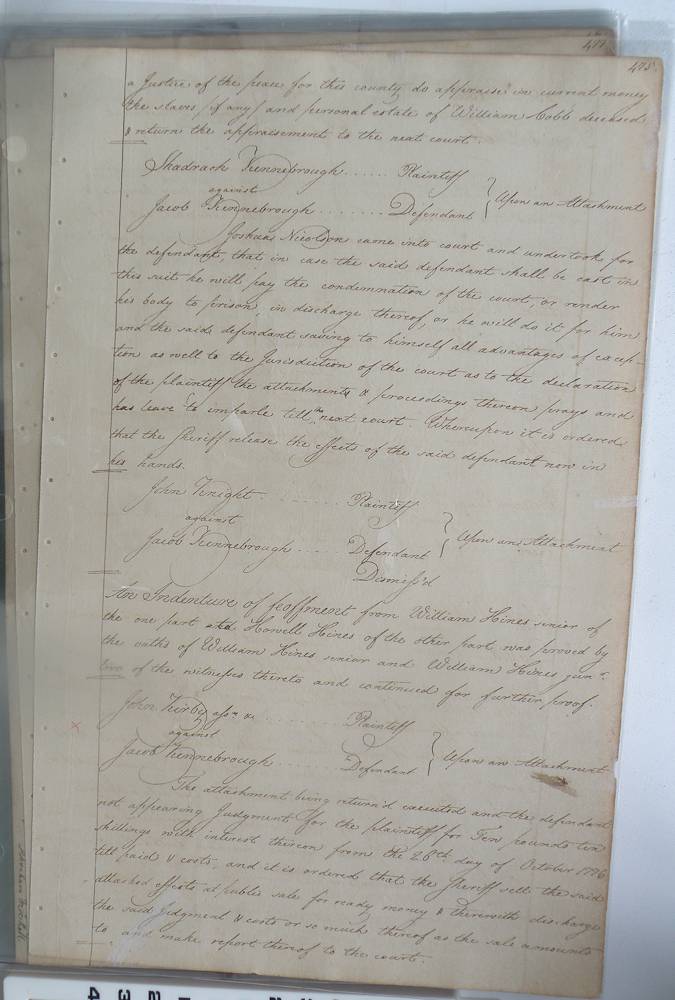 477
475.
a Justice of the peace for this county do appraise in current money
the slaves (if any) and personal estate of William Cobb deceased
& return the appraisement to the next court.
Shadrack Kennebrough ...... Plaintiff
against } Upon an Attachment
Jacob Kennebrough ........ Defendant
Joshua Nicolson came into court and undertook for
the defendant, that in case the said defendant shall be cast in
this suit he will pay the condemnation of the court, or render
his body to prison, in discharge thereof, or he will do it for him
and the said defendant saving to himself all advantages of excep-
tion as well to the Jurisdiction of the court as to the declaration
of the plaintiff the attachment & proceedings thereon prays and
has leave to imparle till the next court. Whereupon it is ordered
that the Sheriff release the effects of the said defendant now in
his hands.
John Knight .......... Plaintiff
against } Upon an Attachment
Jacob Kennebrough .... Defendant
Dismiss'd
An Indenture of feoffment from William Hines senior of
the one part and Howell Hines of the other part was proved by
the oaths of William Hines senior and William Hines junr.
two of the witnesses thereto and continued for further proof.
John Kirby asse. &c ............ Plaintiff
against } Upon an Attachment
Jacob Kennebrough ........ Defendant
The attachment being return'd executed and the defendant
not appearing Judgment for the plaintiff for Ten pounds ten
shillings with interest thereon from the 26th day of October 1776
till paid & costs, and it is ordered that the Sheriff sell the said
attached effects at public sale for ready money & therewith discharge
the said Judgment & costs or so much thereof as the sale amounts
to and make report thereof to the court.
4 3